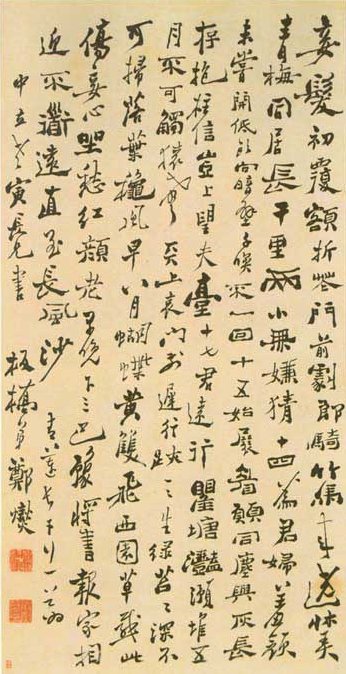 妾髮初覆額折花門前劇郎騎竹馬來遶牀弄
青梅同居長干里兩小無嫌猜十四為君婦羞顏
未嘗開低頭向暗壁千喚不一回十五始展眉願同塵與灰長
存抱柱信豈上望夫臺十七君遠行瞿塘灩澦堆五
月不可觸猿聲天上哀門前遲行跡一一生綠苔苔深不
可掃落葉穐風早八月蝴蝶黃雙飛西園草感此
傷妾心坐愁紅顏老早晚下三巴豫將書報家相
迎不道遠直至長風沙 青蓮長干行一首為
寅長兄書 板橋弟鄭燮